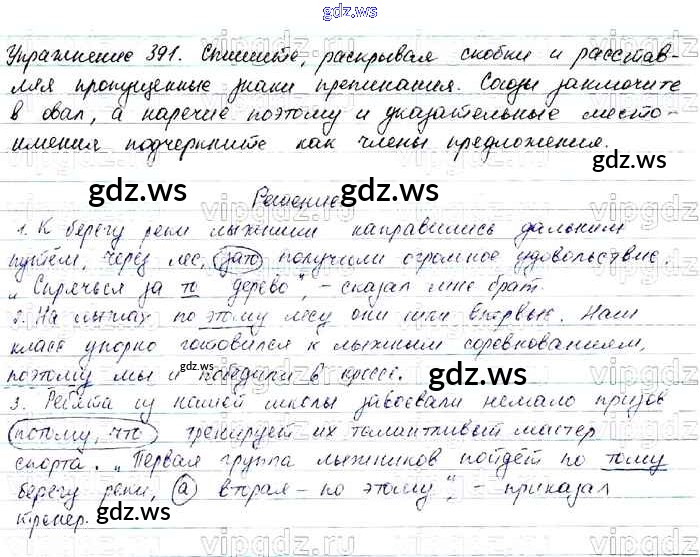 gdz.ws
Упражнение 391. Спишите, раскрывая скобки и расстав-
ляя пропущенные знаки препинания. Союзы заключите
в овал, а наречие поэтому и указательные место-
имения подчеркните как члены предложения.
gdz.ws gdz.ws
Решение
1. К берегу реки лыжники направились дальним
путём, через лес, зато получили огромное удовольствие.
„Спрячься за то дерево", – сказал мне брат.
2. На лыжах по этому лесу они шли впервые. Наш
класс упорно готовился к лыжным соревнованиям,
поэтому мы и победили в кроссе.
gdz.ws gdz.ws
3. Ребята из нашей школы завоевали немало призов
потому, что тренирует их талантливый мастер
спорта. „Первая группа лыжников пойдёт по тому
берегу реки, а вторая – по этому", – приказал
тренер.
gdz.ws gdz.ws